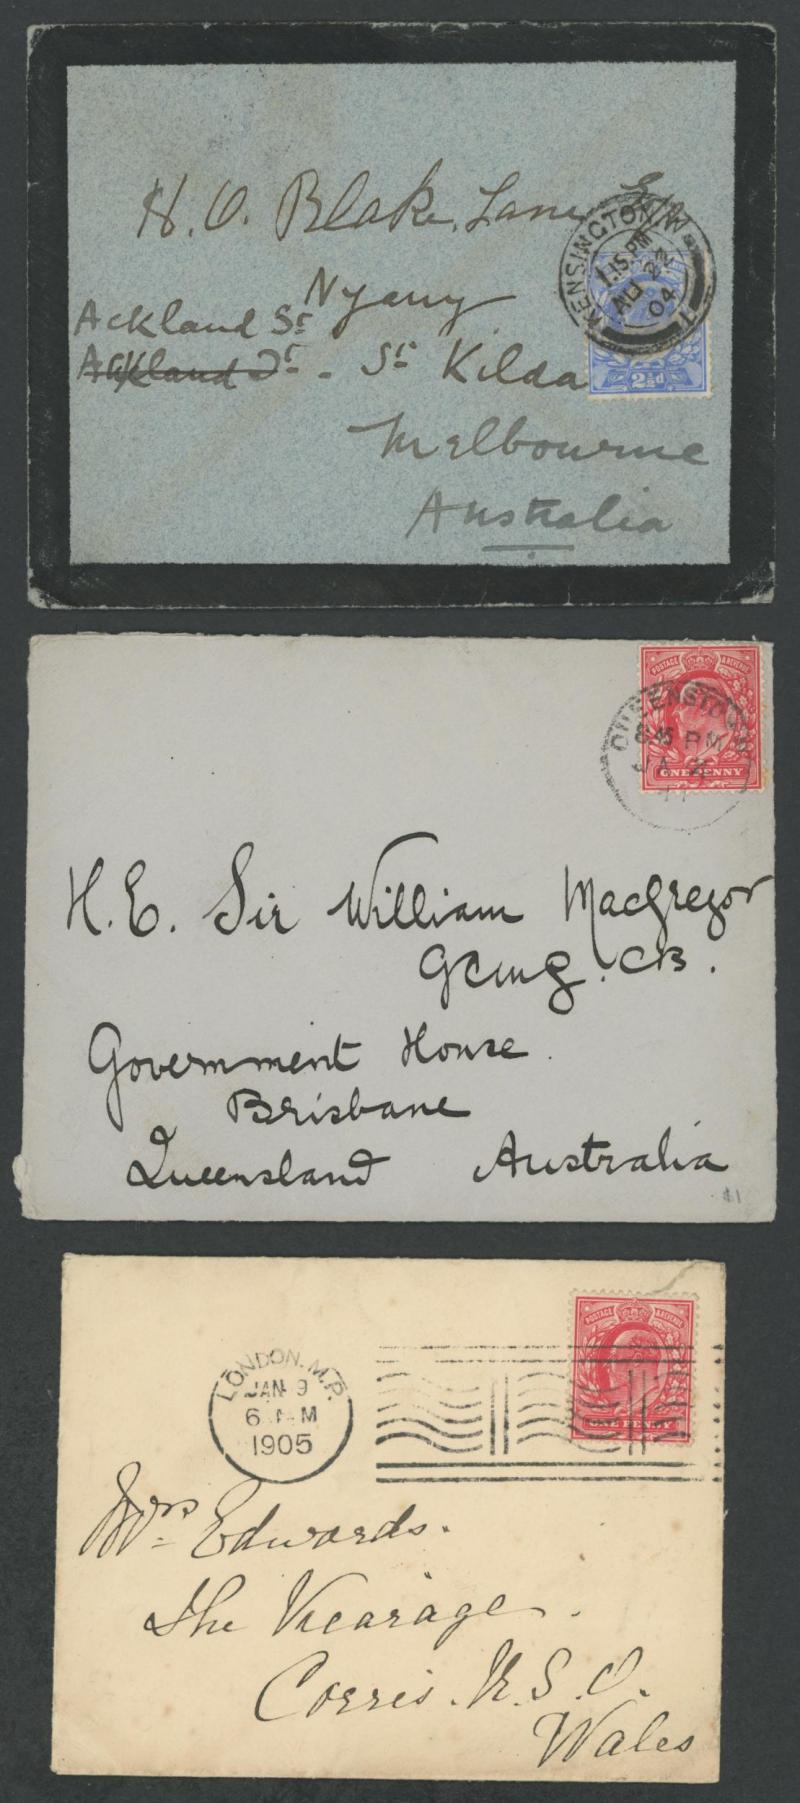 H. O. Blake. Lane Esq
KENSINGTON. W.
1.15 PM
AU 22
04
Nyany
Ackland St
Ackland St. - St Kilda
2½d
Melbourne
Australia
POSTAGE & REVENUE
QUEENSTOWN
8.45 PM
JA
11
ONE PENNY
H. E. Sir William MacGregor
GCMG. CB.
Government House.
Brisbane
Queensland Australia
POSTAGE & REVENUE
LONDON. M.P.
JAN 9
6 M
1905
ONE PENNY
Mrs Edwards.
The Vicarage.
Corris. R. S. O.
Wales